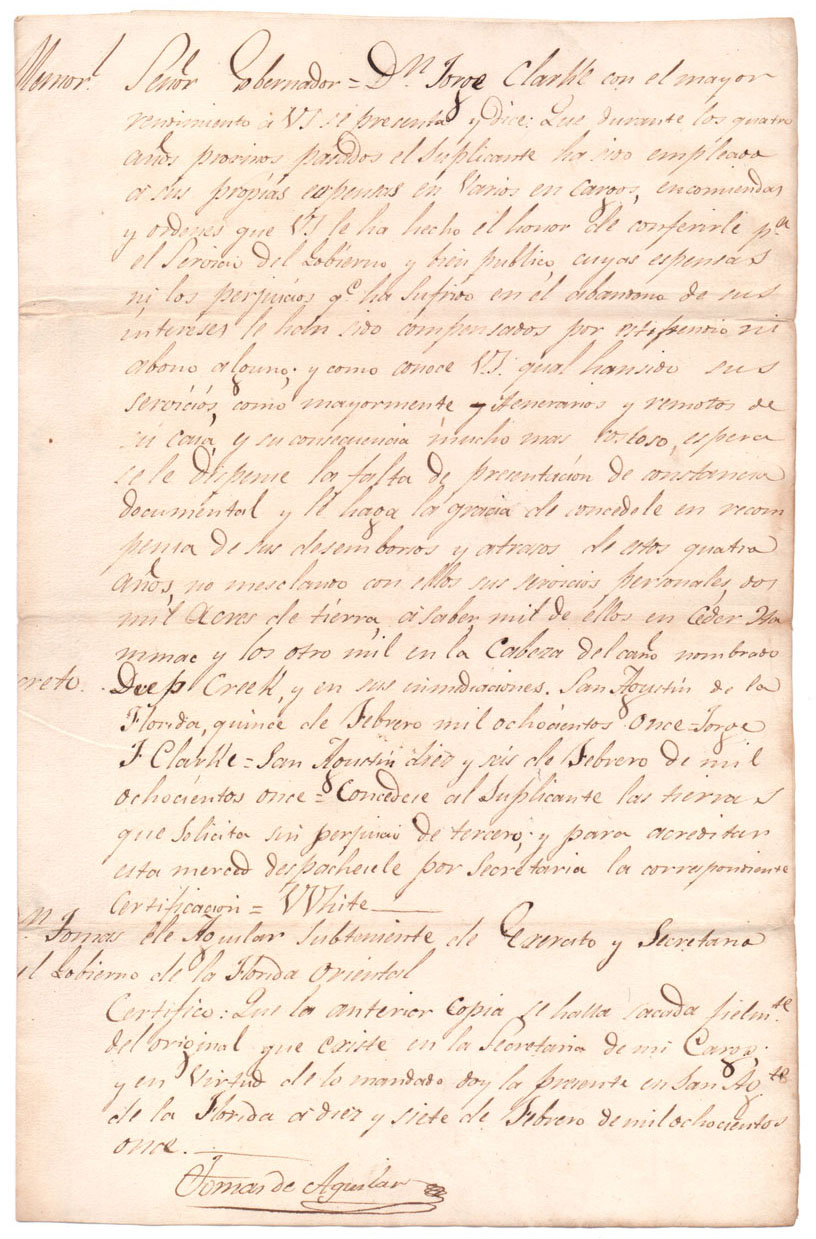 Memor.l Señor Gobernador = Dn. Jorge Clarke con el mayor
rendimiento á VS se presenta y dice: Que durante los quatro
años proximos pasados el Suplicante ha sido empleado
a sus propias expensas en varios en cargos, encomiendas
y ordenes que VS le ha hecho el honor de conferirle pa.
el Servicio del Gobierno y bien publico, cuyas espensas
ni los perjuicios qe. ha sufrido en el abandono de sus
intereses le han sido compensados por estipendio ni
abono alguno; y como conoce VS. qual han sido sus
servicios, como mayormente ytenerarios y remotos de
su casa, y su consecuencia mucho mas costoso, espera
se le dispense la falta de presentación de constancia
documental y le haga la gracia de concedele en recom
pensa de sus desembolsos y atrasos de estos quatro
años, no mesclando con ellos sus servicios personales, dos
mil Acres de tierra, a saber, mil de ellos en Ceder Ha
mmac y los otro mil en la Cabeza del caño nombrado
creto. Deep Creek, y en sus inmediaciones. San Agustin de la
Florida, quince de Febrero mil ochocientos once = Jorge
J Clarke = San Agustin diez y seis de Febrero de mil
ochocientos once = Concedese al Suplicante las tierras
que solicita sin perjuicio de tercero; y para acreditar
esta merced despachesele por Secretaria la correspondiente
Certificacion = White
n. Tomas de Aguilar Subteniente de Exercito y Secretario
el Gobierno de la Florida Oriental
Certifico: Que la anterior copia se halla sacada fielm.te
del original que existe en la Secretaria de mi Cargo;
y en Virtud de lo mandado doy la presente en San Ag.tn
de la Florida a diez y siete de Febrero de mil ochocientos
once.
Tomas de Aguilar